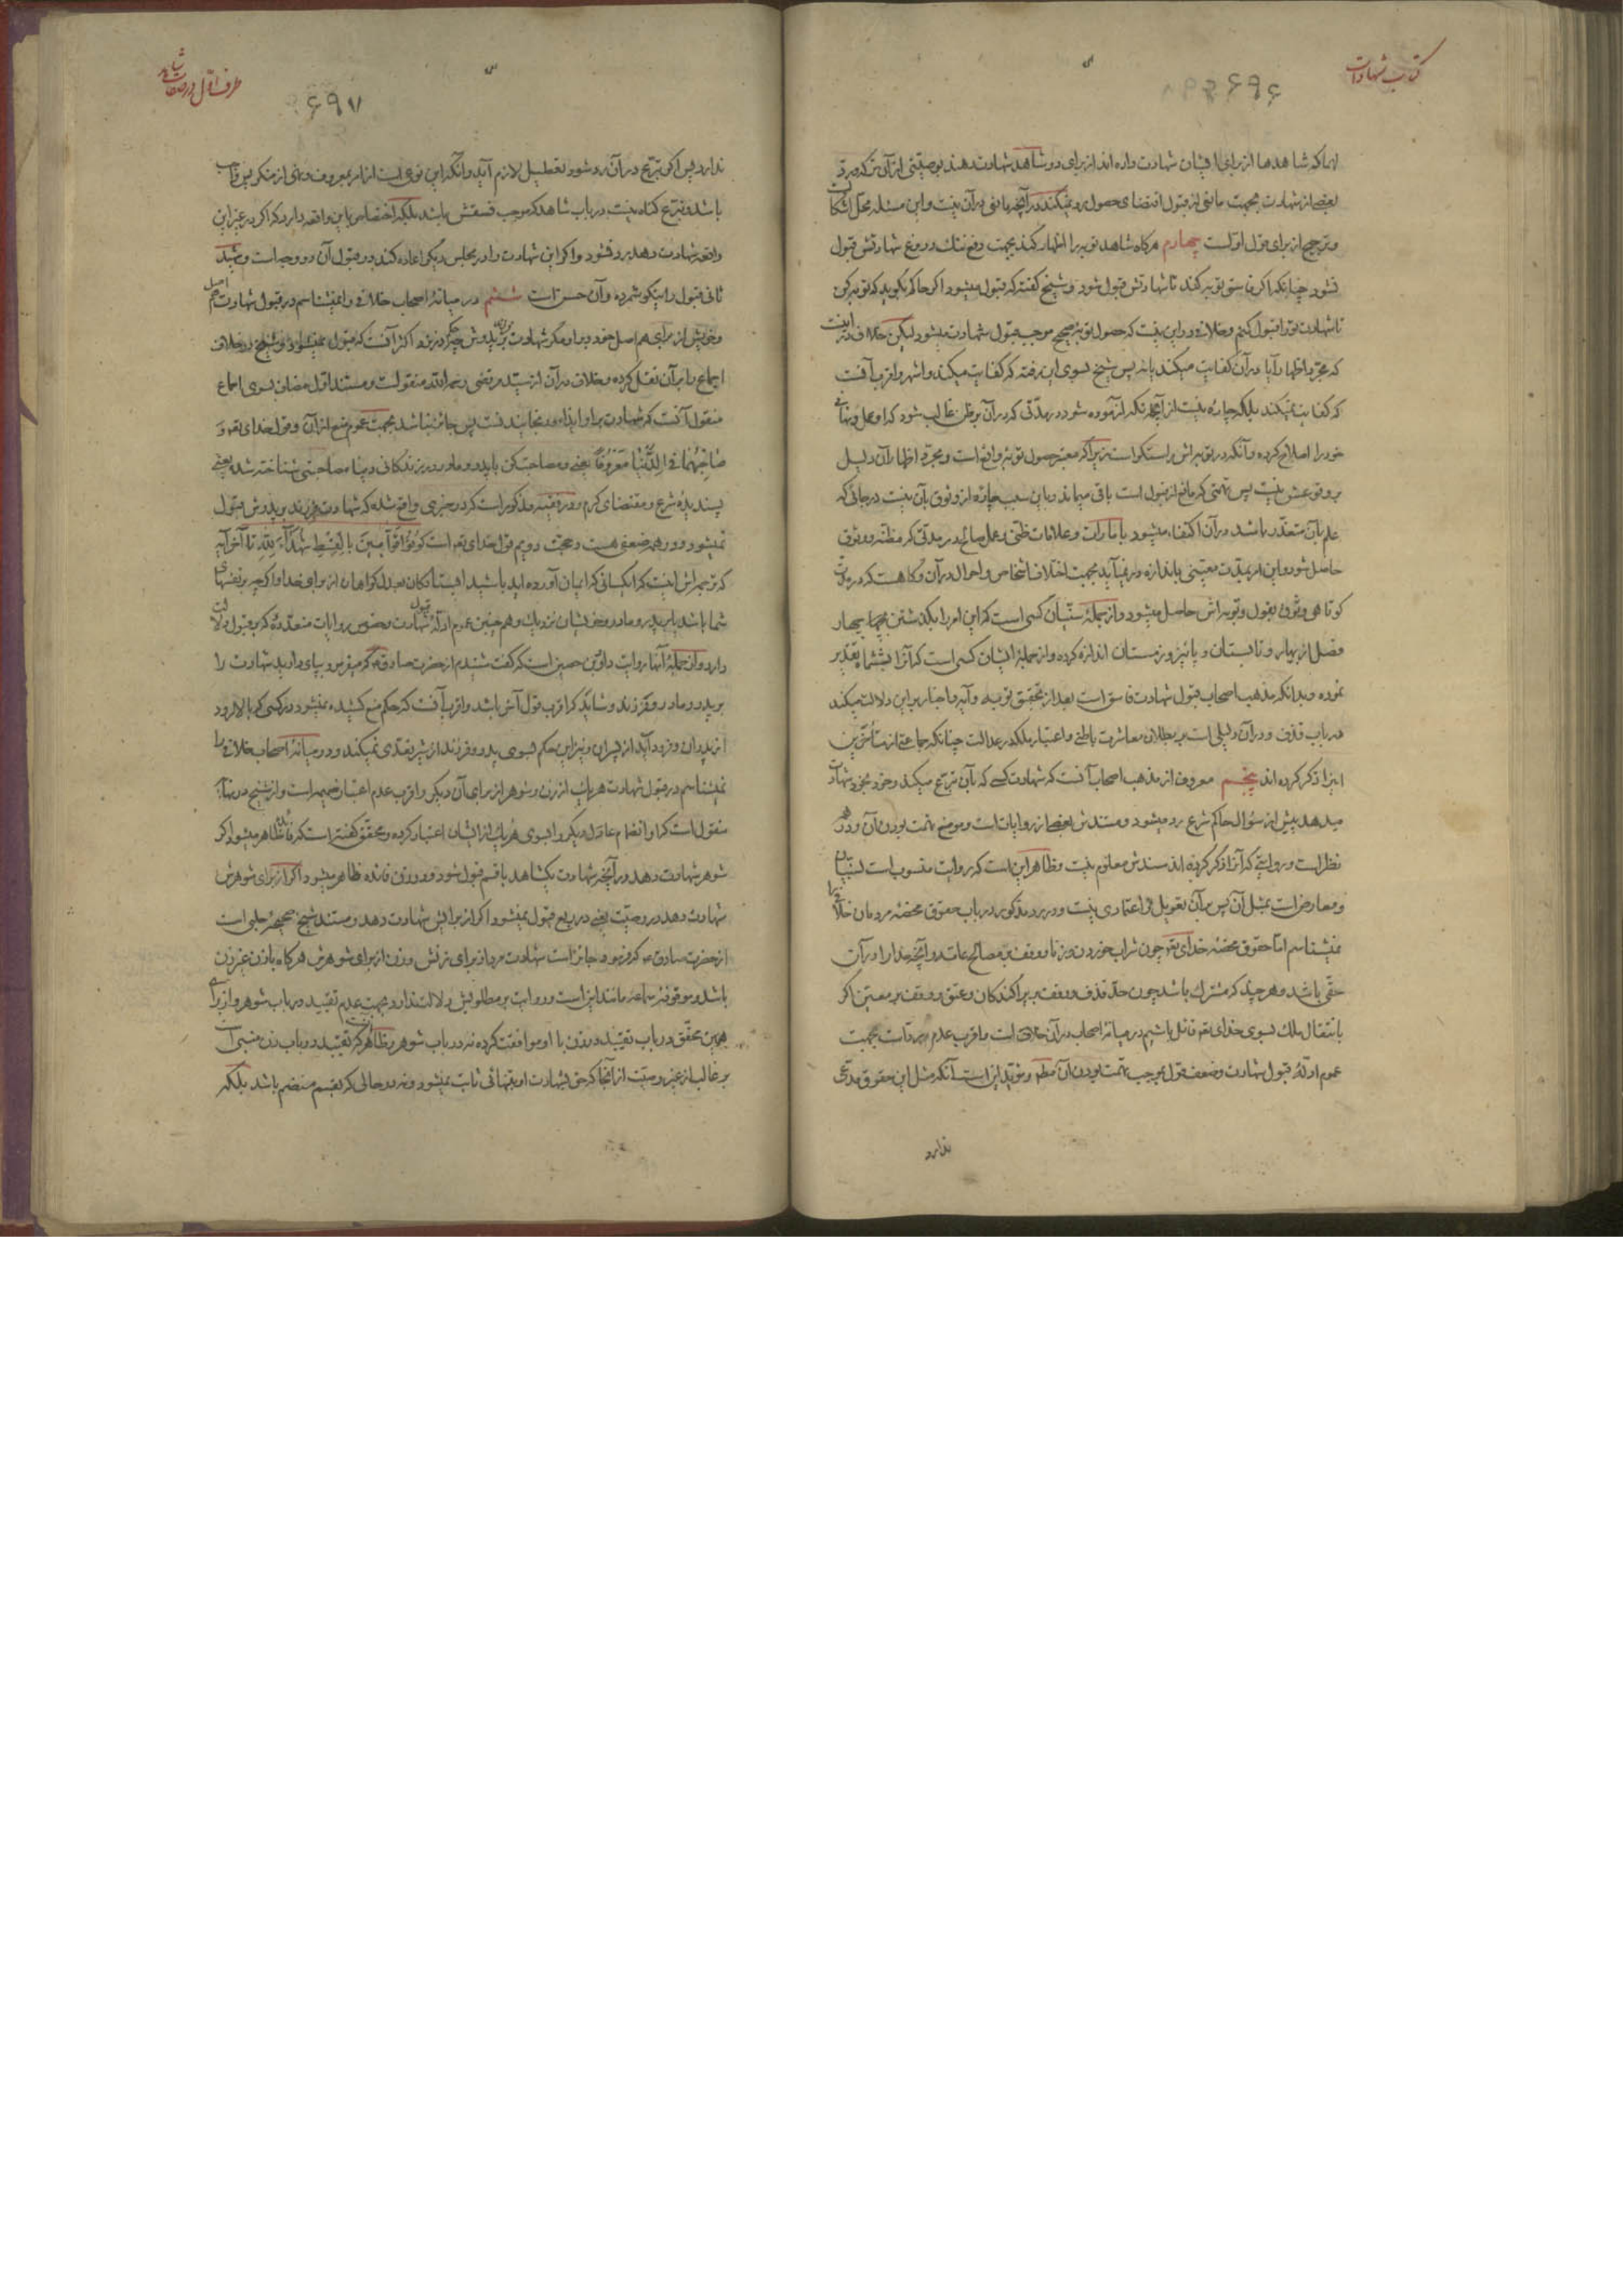 کتاب شهادات
۶۹۶
انها که شاهدها از برای ایشان شهادت داده اند از برای دو شاهد شهادت دهند بوصیتی از آن ترکه
بعضی از شهادت بجهت مانعی از قبول اقتضای حصول رد نمیکند در آنچه مانعی در آن نیست و این مسئله محل اشکال
و ترجیح از برای قول اولست چهارم هرکاه شاهد توبه را اظهار کند بجهت دفع ننک دروغ شهادتش قبول
نشود چنانکه اکر فاسق توبه کند تا شهادتش قبول شود و شیخ کفته که قبول میشود اکر حاکم بکوید که توبه کن
تا شهادت تو را قبول کنم و خلافی در این نیست که حصول توبه صحیح موجب قبول شهادت میشود لیکن خلاف در اینست
که مجرد اظهار آیا در آن کفایت میکند یا نه پس شیخ بسوی این رفته که کفایت میکند و اشهر و اقرب آنست
که کفایت نمیکند بلکه چاره نیست از آنچه که آزموده شود در مدتی که در آن بر ظن غالب شود که او عمل و نهانی
خود را اصلاح کرده و آنکه در توبه اش راستکو است زیرا که معتبر حصول توبه در واقع است و مجرد اظهار آن دلیل
بر وقوعش نیست پس تهمتی که مانع از قبول است باقی میماند و باین سبب چاره از وثوق بآن نیست در جائی که
علم بآن متعذر باشد در آن اکتفاء میشود بامارات و علامات ظنی و عمل صالح در مدتی که مظنه و وثوق
حاصل شود و این امر بمدت معینی باندازه در نمیآید بجهت اختلاف اشخاص و احوال در آن و کاهست که در مدت
کوتاهی وثوق بقول و توبه اش حاصل میشود و از جمله سنیان کسی است که این امر را بکذشتن چهار
فصل از بهار و تابستان و پائیز و زمستان اندازه کرده و از جمله ایشان کسی است که آنرا بششماه تقدیر
نموده و بدانکه مذهب اصحاب قبول شهادت فاسق است بعد از تحقق توبه و آیه و اخبار بر این دلالت میکند
در باب قذف و در آن دلیلی است بر بطلان معاشرت باطنی و اعتبار ملکه در عدالت چنانکه جماعتی از متأخرین
اینرا ذکر کرده اند پنجم معروف از مذهب اصحاب آنست که شهادت کسی که بآن تبرع میکند و خود بخود شهادت
میدهد پیش از سؤال حاکم شرع رد میشود و مستندش بعضی از روایات است و موضع تهمت بودن آن و در هر دو
نظر است و روایتی که آنرا ذکر کرده اند سندش معلوم نیست و ظاهر این است که روایت منسوب است بسنیان
و معارض است بمثل آن پس بر آن تعویل و اعتمادی نیست و در رد مذکور در باب حقوق محضه مردمان خلافی را
نمیشناسم اما حقوق محضه خدای تعم چون شراب خوردن و زنا و وقف بر مصالح عامه و آنچه خدا را در آن
حقی باشد و هر چند که مشترک باشد چون حد قذف و وقف بر پراکندکان و عتق و وقف بر معین اکر
بانتقال ملک بسوی خدای تعم قائل باشیم در میانه اصحاب در آن خلافی است و اقرب عدم رد است بجهت
عموم ادله قبول شهادت و ضعف قول بموجب تهمت بودن آن مطم و مؤید این است آنکه مثل این حقوق مدعی
ندارد
طرف اول در صفات شاهد
۶۹۷
ندارد پس اکر تبرع در آن رد شود تعطیل لازم آید و آنکه این نوعی است از امر بمعروف و نهی از منکر پس واجب
باشد و تبرع کناه نیست در باب شاهد که موجب فسقش باشد بلکه اختصاص باین واقعه دارد که اکر در غیر این
واقعه شهادت دهد رد نشود و اکر این شهادت را در مجلس دیکر اعاده کند در قبول آن دو وجه است و شهید
ثانی قبول را نیکو شمرده و آن حسن است ششم در میانه اصحاب خلافی را نمیشناسم در قبول شهادت اصل
و خویش از برای هم اصل خود و بر او مکر شهادت فرزند بر پدرش چه در نزد اکثر آنست که قبول نمیشود و شیخ در خلاف
اجماع را بر آن نقل کرده و خلاف در آن از سید مرتضی رحمه الله منقولست و مستند اول مضاف بسوی اجماع
منقول آنست که شهادت بر او ایذاء و رنجانیدنست پس جائز نباشد بجهت عموم منع از آن و قول خدای تعم وَ
صَاحِبْهُمَا فِي الدُّنْيَا مَعْرُوفًا یعنی و مصاحبت کن با پدر و مادر در زندکانی دنیا مصاحبتی شناخته شده یعنی
پسندیده شرع و مقتضای کرم و در فقیه مذکور است که در خبری واقع شده که شهادت فرزند بر پدرش قبول
نمیشود و در همه ضعفی هست و حجت دویم قول خدای تعم است كُونُوا قَوَّامِينَ بِالْقِسْطِ شُهَدَاءَ لِلَّهِ تا آخر آیه
که ترجمه اش اینست که ای کسانی که ایمان آورده اید باشید ایستادکان بعدل کواهان از برای خدا و اکرچه بر نفسهای
شما باشد یا بر پدر و مادر و خویشان نزدیک و همچنین عموم ادله قبول شهادت و خصوص روایات متعدده که بر قبول دلالت
دارد و از جمله آنها روایت داود بن حصین است که کفت شنیدم از حضرت صادق ع که میفرمود بپای دارید شهادت را
بر پدر و مادر و فرزند و شاید که اقرب قول آخر باشد و اقرب آنست که حکم منع کشیده نمیشود در کسی که بالا رود
از پدران و فرود آید از پسران و نیز این حکم بسوی پدر و فرزند از شیر تعدی نمیکند و در میانه اصحاب خلافی را
نمیشناسم در قبول شهادت هر یک از زن و شوهر از برای آن دیکر و اقرب عدم اعتبار ضمیمه است و از شیخ در نهایه
منقول است که او انضمام عادل دیکر را بسوی هر یک از ایشان اعتبار کرده و محقق کفته است که فائده ظاهر میشود اکر
شوهر شهادت دهد در آنچه شهادت یکشاهد با قسم قبول شود و در زن فائده ظاهر میشود اکر از برای شوهرش
شهادت دهد در وصیت یعنی در ربع قبول نمیشود اکر از برایش شهادت دهد و مستند شیخ صحیحه حلبی است
از حضرت صادق ع که فرمود جائز است شهادت مرد از برای زنش و زن از برای شوهرش هرکاه با زن غیر زن
باشد و موثقه سماعه مانند این است و روایت بر مطلوبش دلالت ندارد بجهت عدم تقیید در باب شوهر و از برای
همین محقق در باب تقیید در زن با او موافقت کرده نه در باب شوهر و ظاهر آنست که تقیید در باب زن مبنی است
بر غالب از غیر وصیت از آنجا که حق بشهادت او بتنهائی ثابت نمیشود و نه در حالی که بقسم منضم باشد بلکه